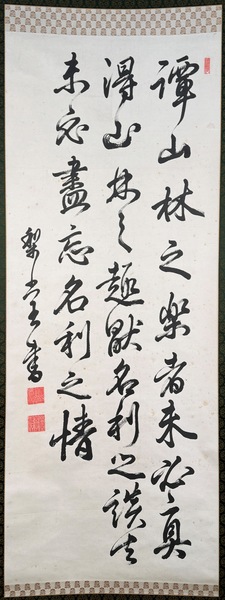 譚山林之楽者未必真
得山林之趣厭名利之談者
未必盡忘名利之情
梨堂書